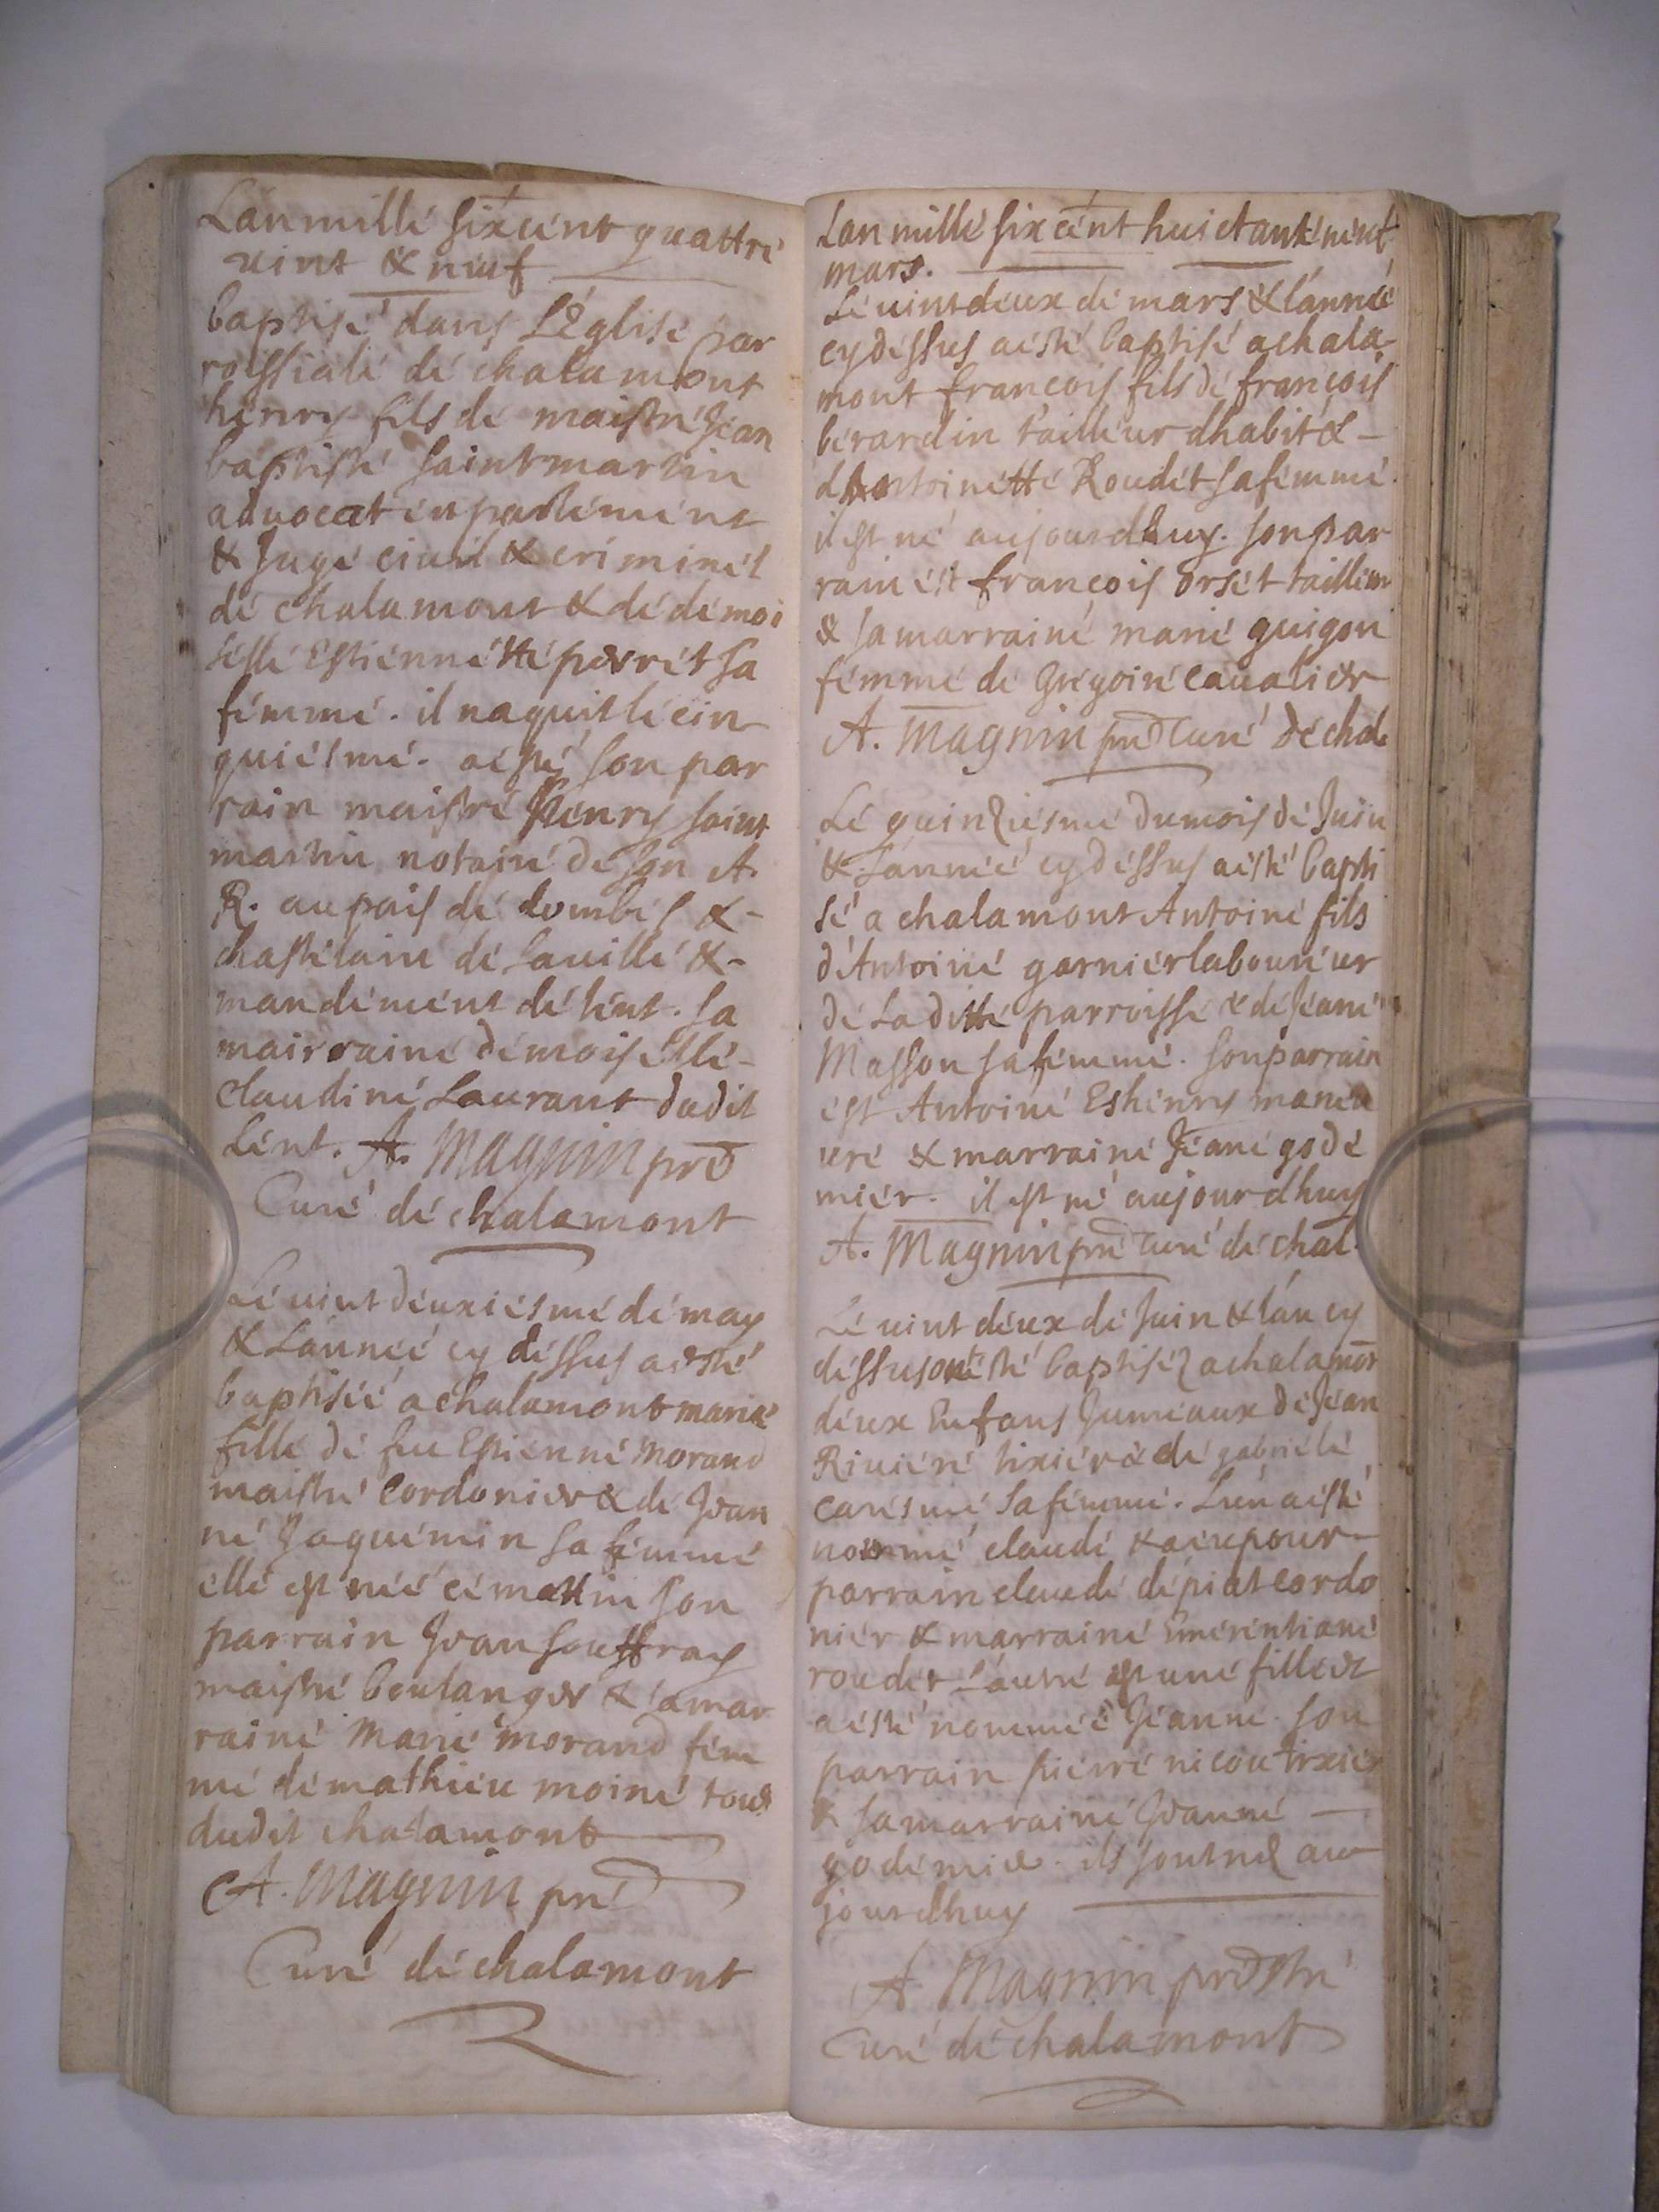 Lan mille six cent quattre
vint & neuf
baptisé dans L'Eglise par
roissiale de chalamont
henry fils de maistre Jean
baptiste saint martin
advocat en parlement
& Juge civil & criminel
de chalamont & de demoi
selle Estiennette perret sa
femme. il naquit le cin
quiesme. a esté son par
rain maistre henry saint
martin notaire de son A.
R. au pais de dombes &
chastelain de la ville &
mandement de lent. sa
mairraine demoiselle
claudine Laurant dudit
Lent. A. Magnin pre
Curé de chalamont
Le vint deuxiesme de may
& L'année cy dessus a esté
baptisée a chalamont marie
fille de feu Estienne Morand
maistre Cordonier & de Jean
ne Jaquemin sa femme
elle est née ce mattin son
parrain Jean souffray
maistre boulanger & sa mar
raine Marie morand fem
me de mathieu moine tous
dudit chalamont
A. Magnin pre
Curé de chalamont
Lan mille six cent huictante neuf
mars.
Le vint deux de mars & l'année
cy dessus a esté baptisé a chala
mont francois fils de françois
berardin tailleur dhabit &
dAntoinette Roudet sa femme.
il est né aujourdhuy. son par
rain est françois orset tailleur
& sa marraine marie guigon
femme de Gregoire Cavalier
A. Magnin pre Curé de chala
Le quinziesme du mois de Juin
& L'année cy dessus a esté bapti
sé a chalamont Antoine fils
d'Antoine garnier laboureur
de La ditte parroisse & de Jeane
Masson sa femme. son parrain
est Antoine Eshenry maneu
vre & marraine Jeane gode
mier. il est né aujourdhuy
A. Magnin pre Curé de chal.
Le vint deux de Juin & l'an cy
dessus ont esté baptisez a chalamot
deux Enfans Jumeaux de Jean
Riviere tixier & de gabriele
caresme sa femme. L'un a esté
nommé claude & a eu pour
parrain claude depiat cordo
nier & marraine Emerentiane
roudet L'autre est une fille et
a esté nommée Jeanne. son
parrain pierre nicou tixier
& sa marraine Jeanne
godemier. ils sont nez au
jourdhuy
A Magnin prestre
Curé de chalamont